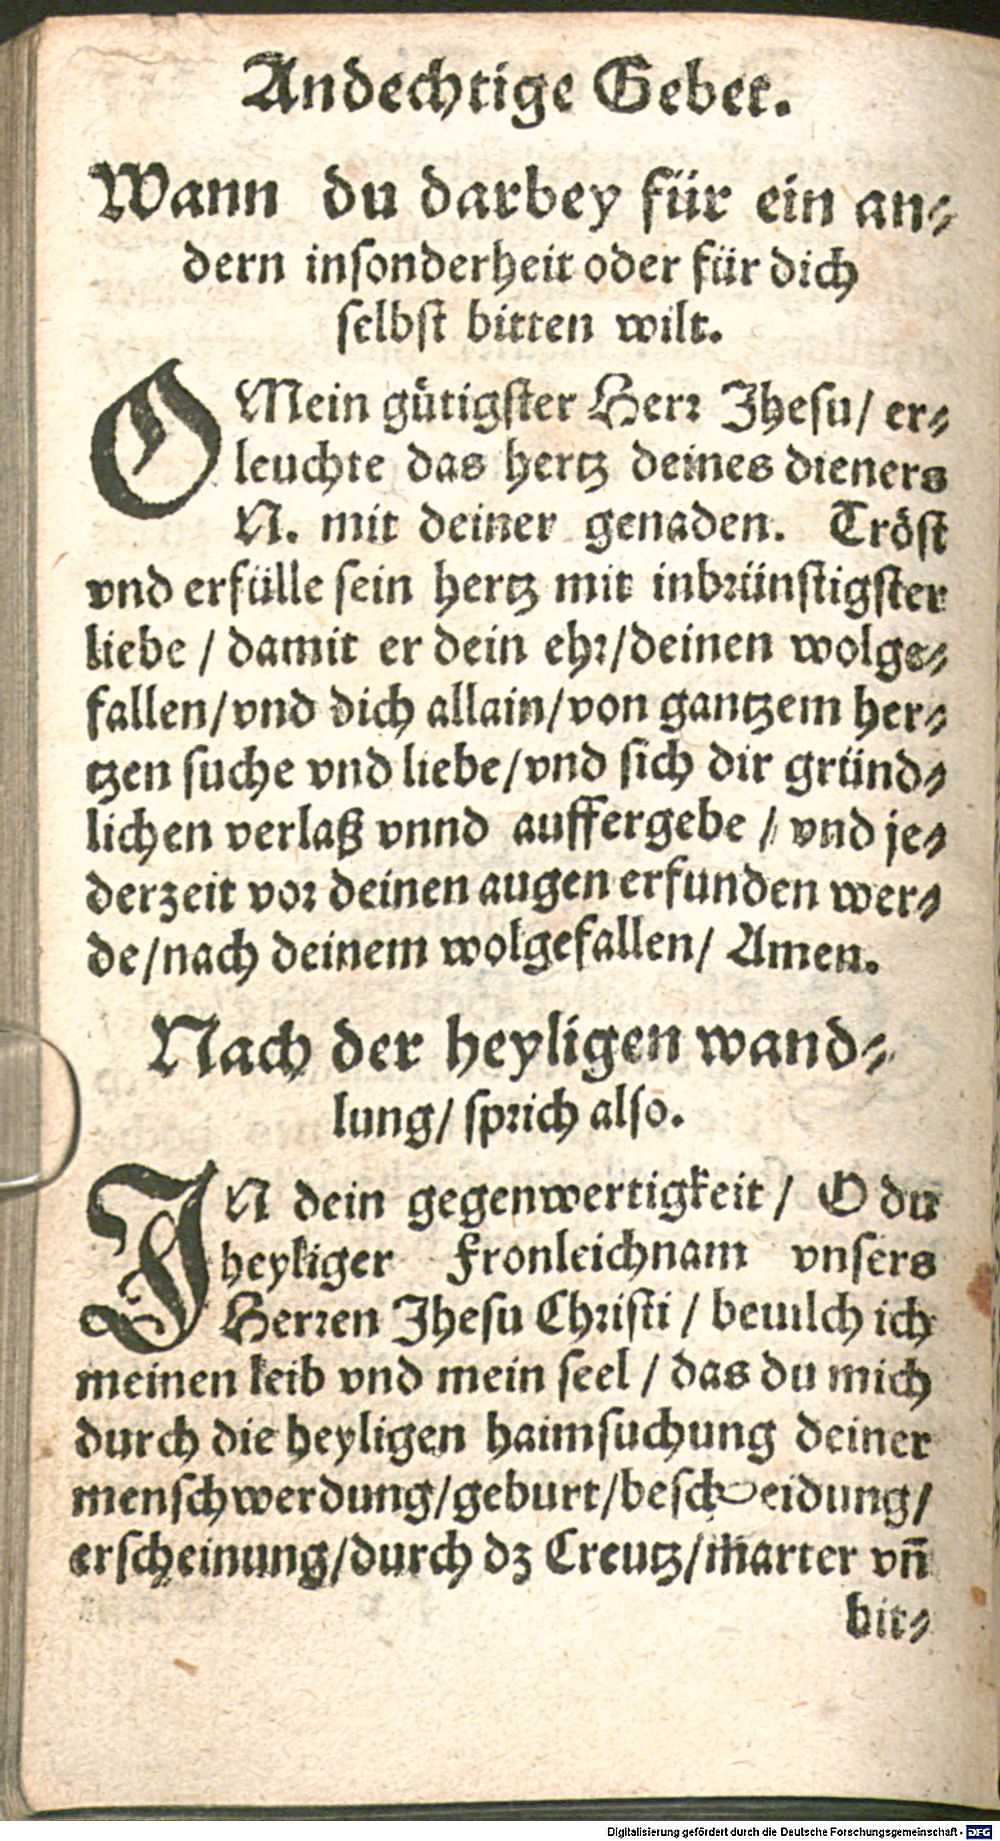 Andechtige Gebet.
Wann du darbey für ein an⸗
dern insonderheit oder für dich
selbst bitten wilt.
O Mein gütigster Herr Jhesu/ er⸗
leuchte das hertz deines dieners
N. mit deiner genaden. Tröst
vnd erfülle sein hertz mit inbrünstigster
liebe / damit er dein ehr/deinen wolge⸗
fallen/vnd dich allain/von gantzem her⸗
tzen suche vnd liebe/vnd sich dir gründ⸗
lichen verlaß vnnd auffergebe / vnd je⸗
derzeit vor deinen augen erfunden wer⸗
de/nach deinem wolgefallen/ Amen.
Nach der heyligen wand⸗
lung/ sprich also.
IN dein gegenwertigkeit / O du
heyliger Fronleichnam vnsers
Herren Jhesu Christi / beuilch ich
meinen leib vnd mein seel / das du mich
durch die heyligen haimsuchung deiner
menschwerdung/geburt/bescheidung/
erscheinung/durch dz Creutz/marter vn̄
bit⸗
Digitalisierung gefördert durch die Deutsche Forschungsgemeinschaft - DFG